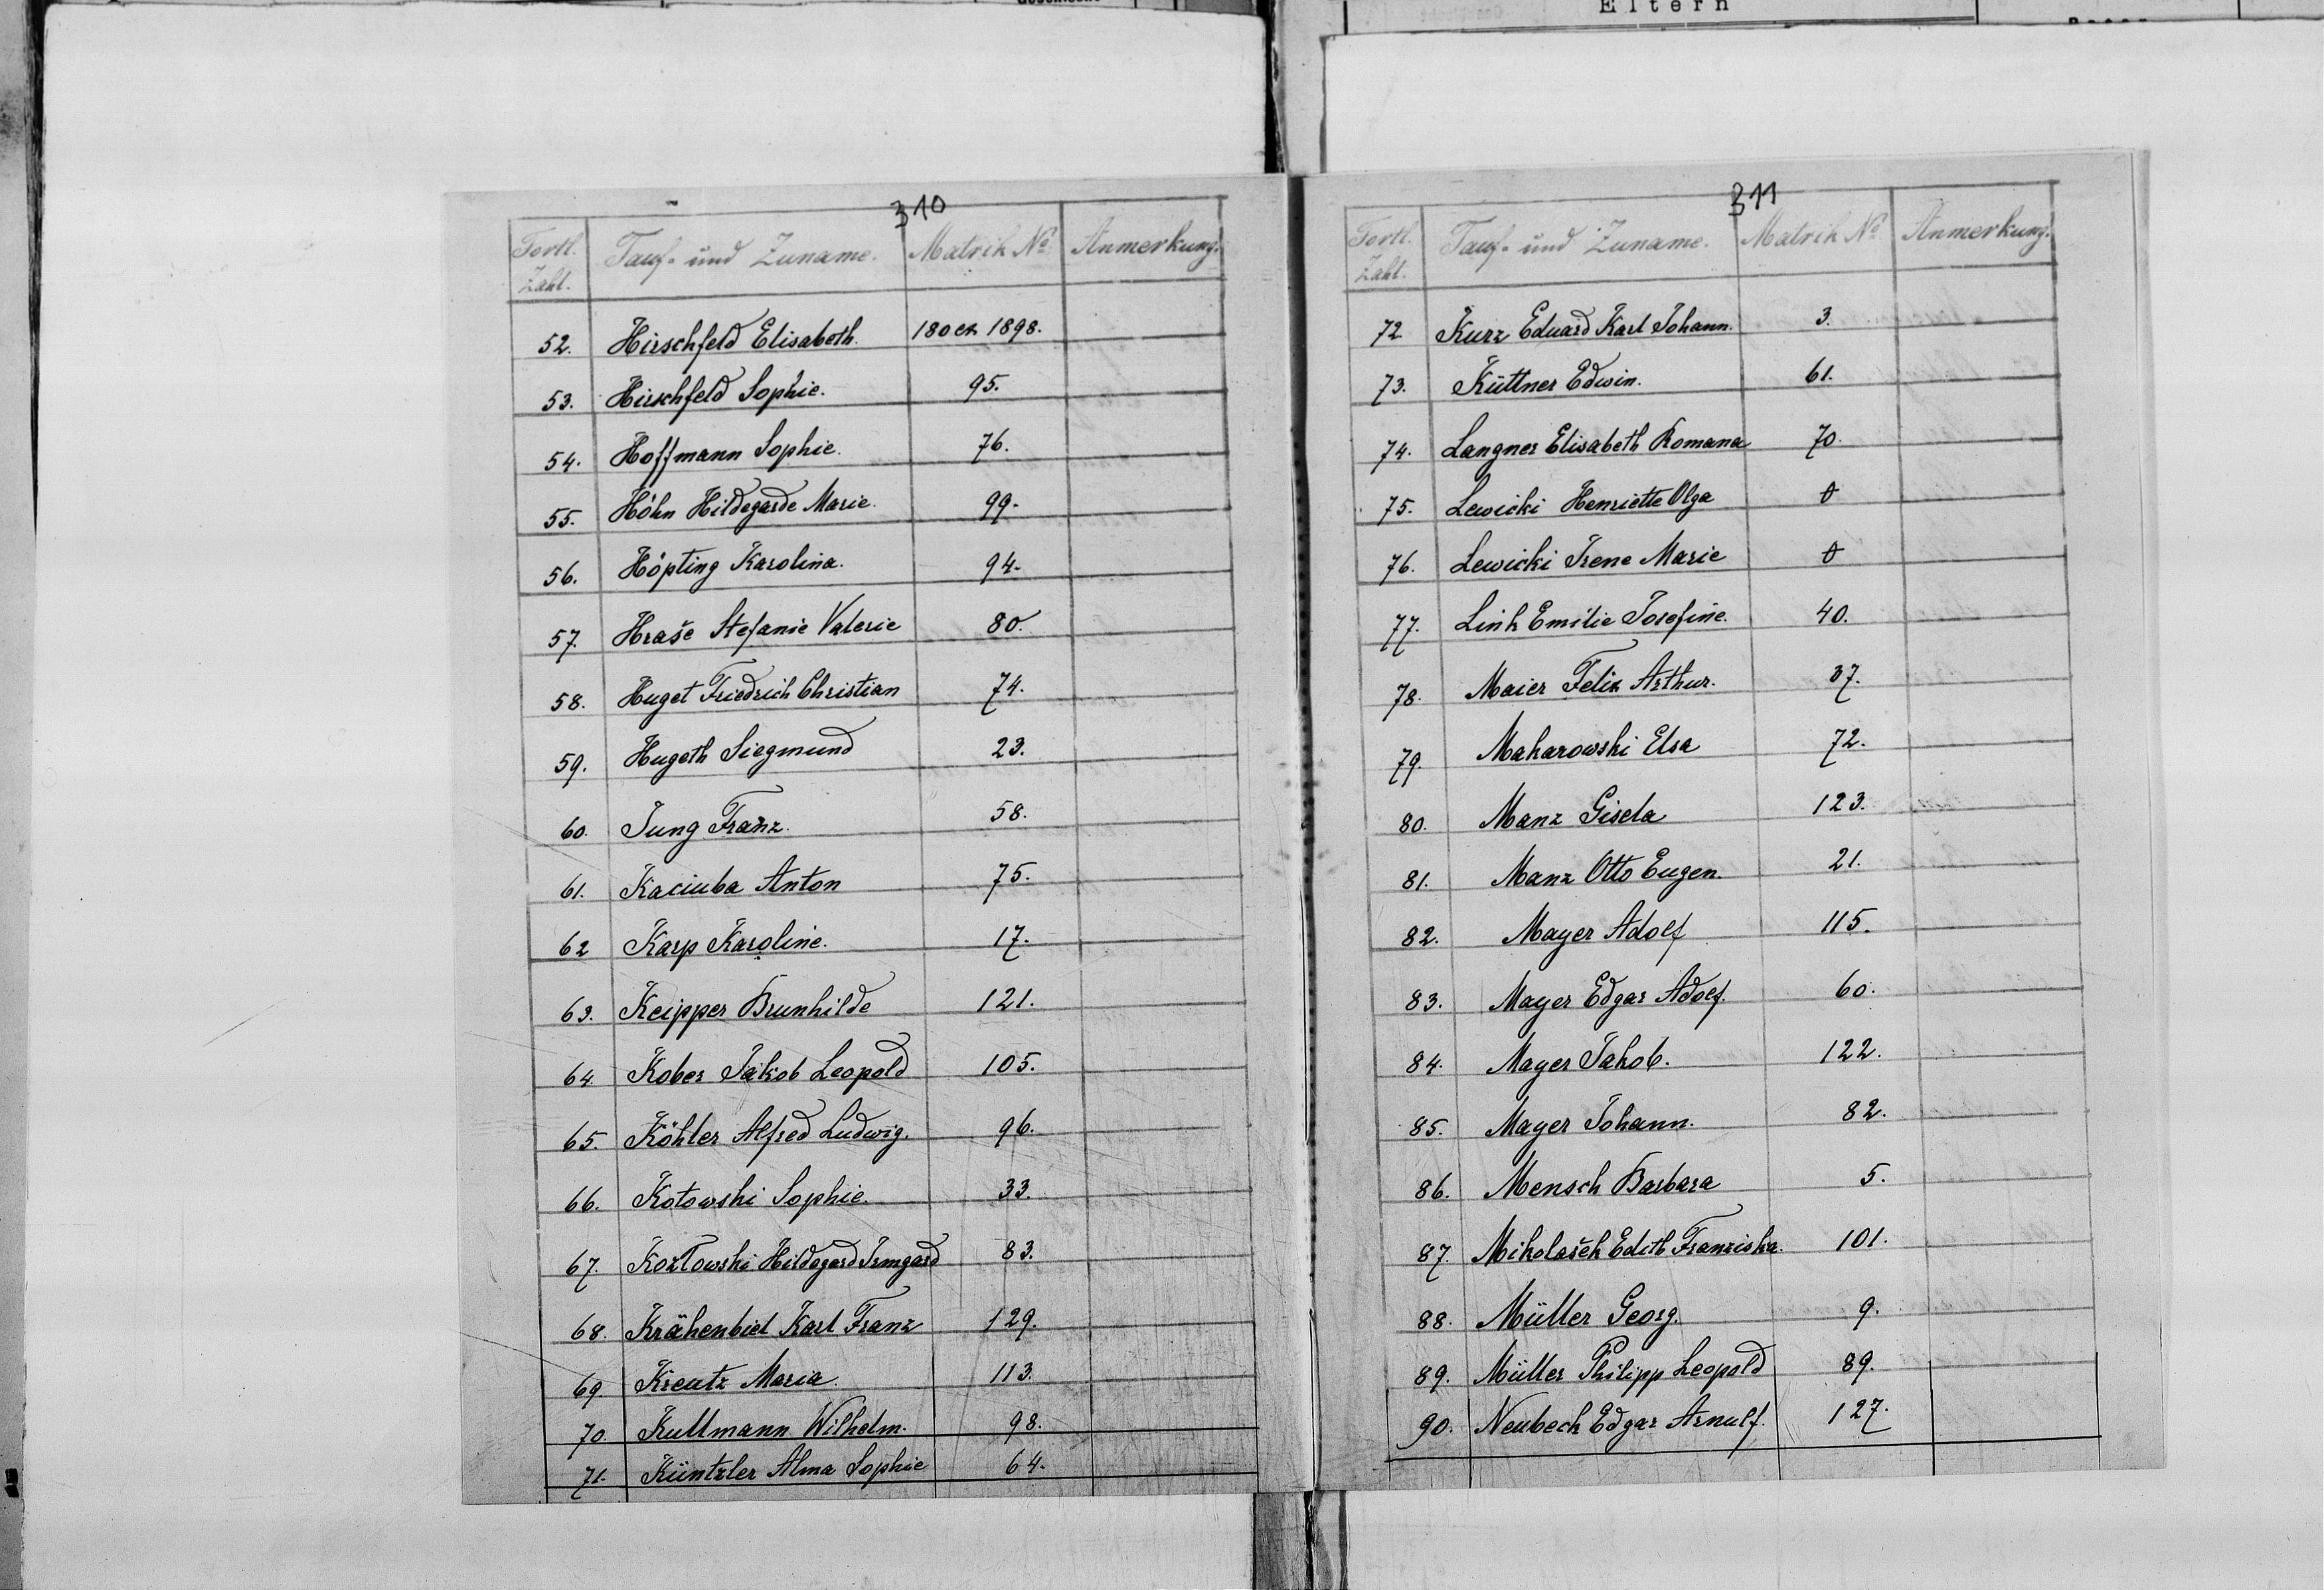 Eltern
310
Fortl. Zahl. Tauf- und Zuname. Matrik No Anmerkung.
52. Hirschfeld Elisabeth. 180 ex 1898.
53. Hirschfeld Sophie. 95.
54. Hoffmann Sophie. 76.
55. Höhn Hildegarde Marie. 99.
56. Höpting Karolina. 94.
57. Hraše Stefanie Valerie 80.
58. Huget Friedrich Christian 74.
59. Hugeth Siegmund 23.
60. Jung Franz. 58.
61. Kaciuba Anton 75.
62 Karp Karoline. 17.
63. Keipper Brunhilde 121.
64. Kober Jakob Leopold 105.
65. Köhler Alfred Ludwig. 96.
66. Kotowski Sophie. 33.
67. Kozłowski Hildegard Irmgard 83.
68. Krähenbiel Karl Franz 129.
69. Kreutz Maria. 113.
70. Kullmann Wilhelm. 98.
71. Küntzler Alma Sophie 64.
311
Fortl. Zahl. Tauf- und Zuname. Matrik No Anmerkung.
72 Kurz Eduard Karl Johann. 3.
73. Küttner Edwin. 61.
74. Langner Elisabeth Romana 70.
75. Lewicki Henriette Olga
76. Lewicki Irene Marie
77. Link Emilie Josefine. 40.
78. Maier Felix Arthur. 37.
79. Makarowski Elsa 72.
80. Manz Gisela 123.
81. Manz Otto Eugen. 21.
82. Mayer Adolf 115.
83. Mayer Edgar Adolf. 60.
84. Mayer Jakob. 122.
85. Mayer Johann. 82.
86. Mensch Barbara 5.
87. Mikolašek Edith Franziska. 101.
88. Müller Georg. 9.
89. Müller Philipp Leopold 89.
90. Neubeck Edgar Arnulf. 127.